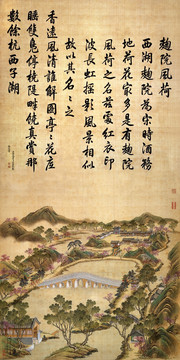 麯院風荷
西湖麯院為宋時酒務
地荷花冣多是有麯院
風荷之名茲處紅衣印
波長虹搖影風景相似
故以其名名之
香遠風清誰解圖亭〻花底
睡雙鳧停橈堤畔饒真賞那
數餘杭西子湖